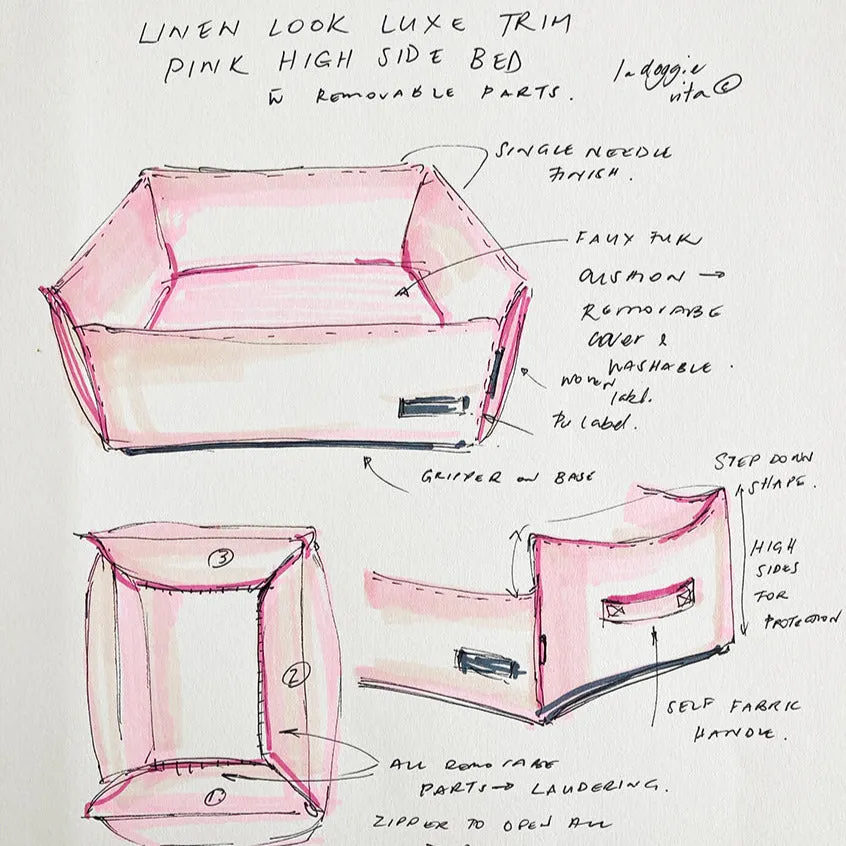 LINEN LOOK LUXE TRIM
PINK HIGH SIDE BED
W REMOVABLE PARTS.
la doggie
vita ©
SINGLE NEEDLE
FINISH.
FAUX FUR
CUSHION →
REMOVABLE
COVER &
WASHABLE.
WOVEN
label.
PU Label.
GRIPPER ON BASE
STEP DOWN
SHAPE.
HIGH
SIDES
FOR
PROTECTION
SELF FABRIC
HANDLE.
3
2
1
ALL REMOVABE
PARTS → LAUDERING.
ZIPPER TO OPEN ALL